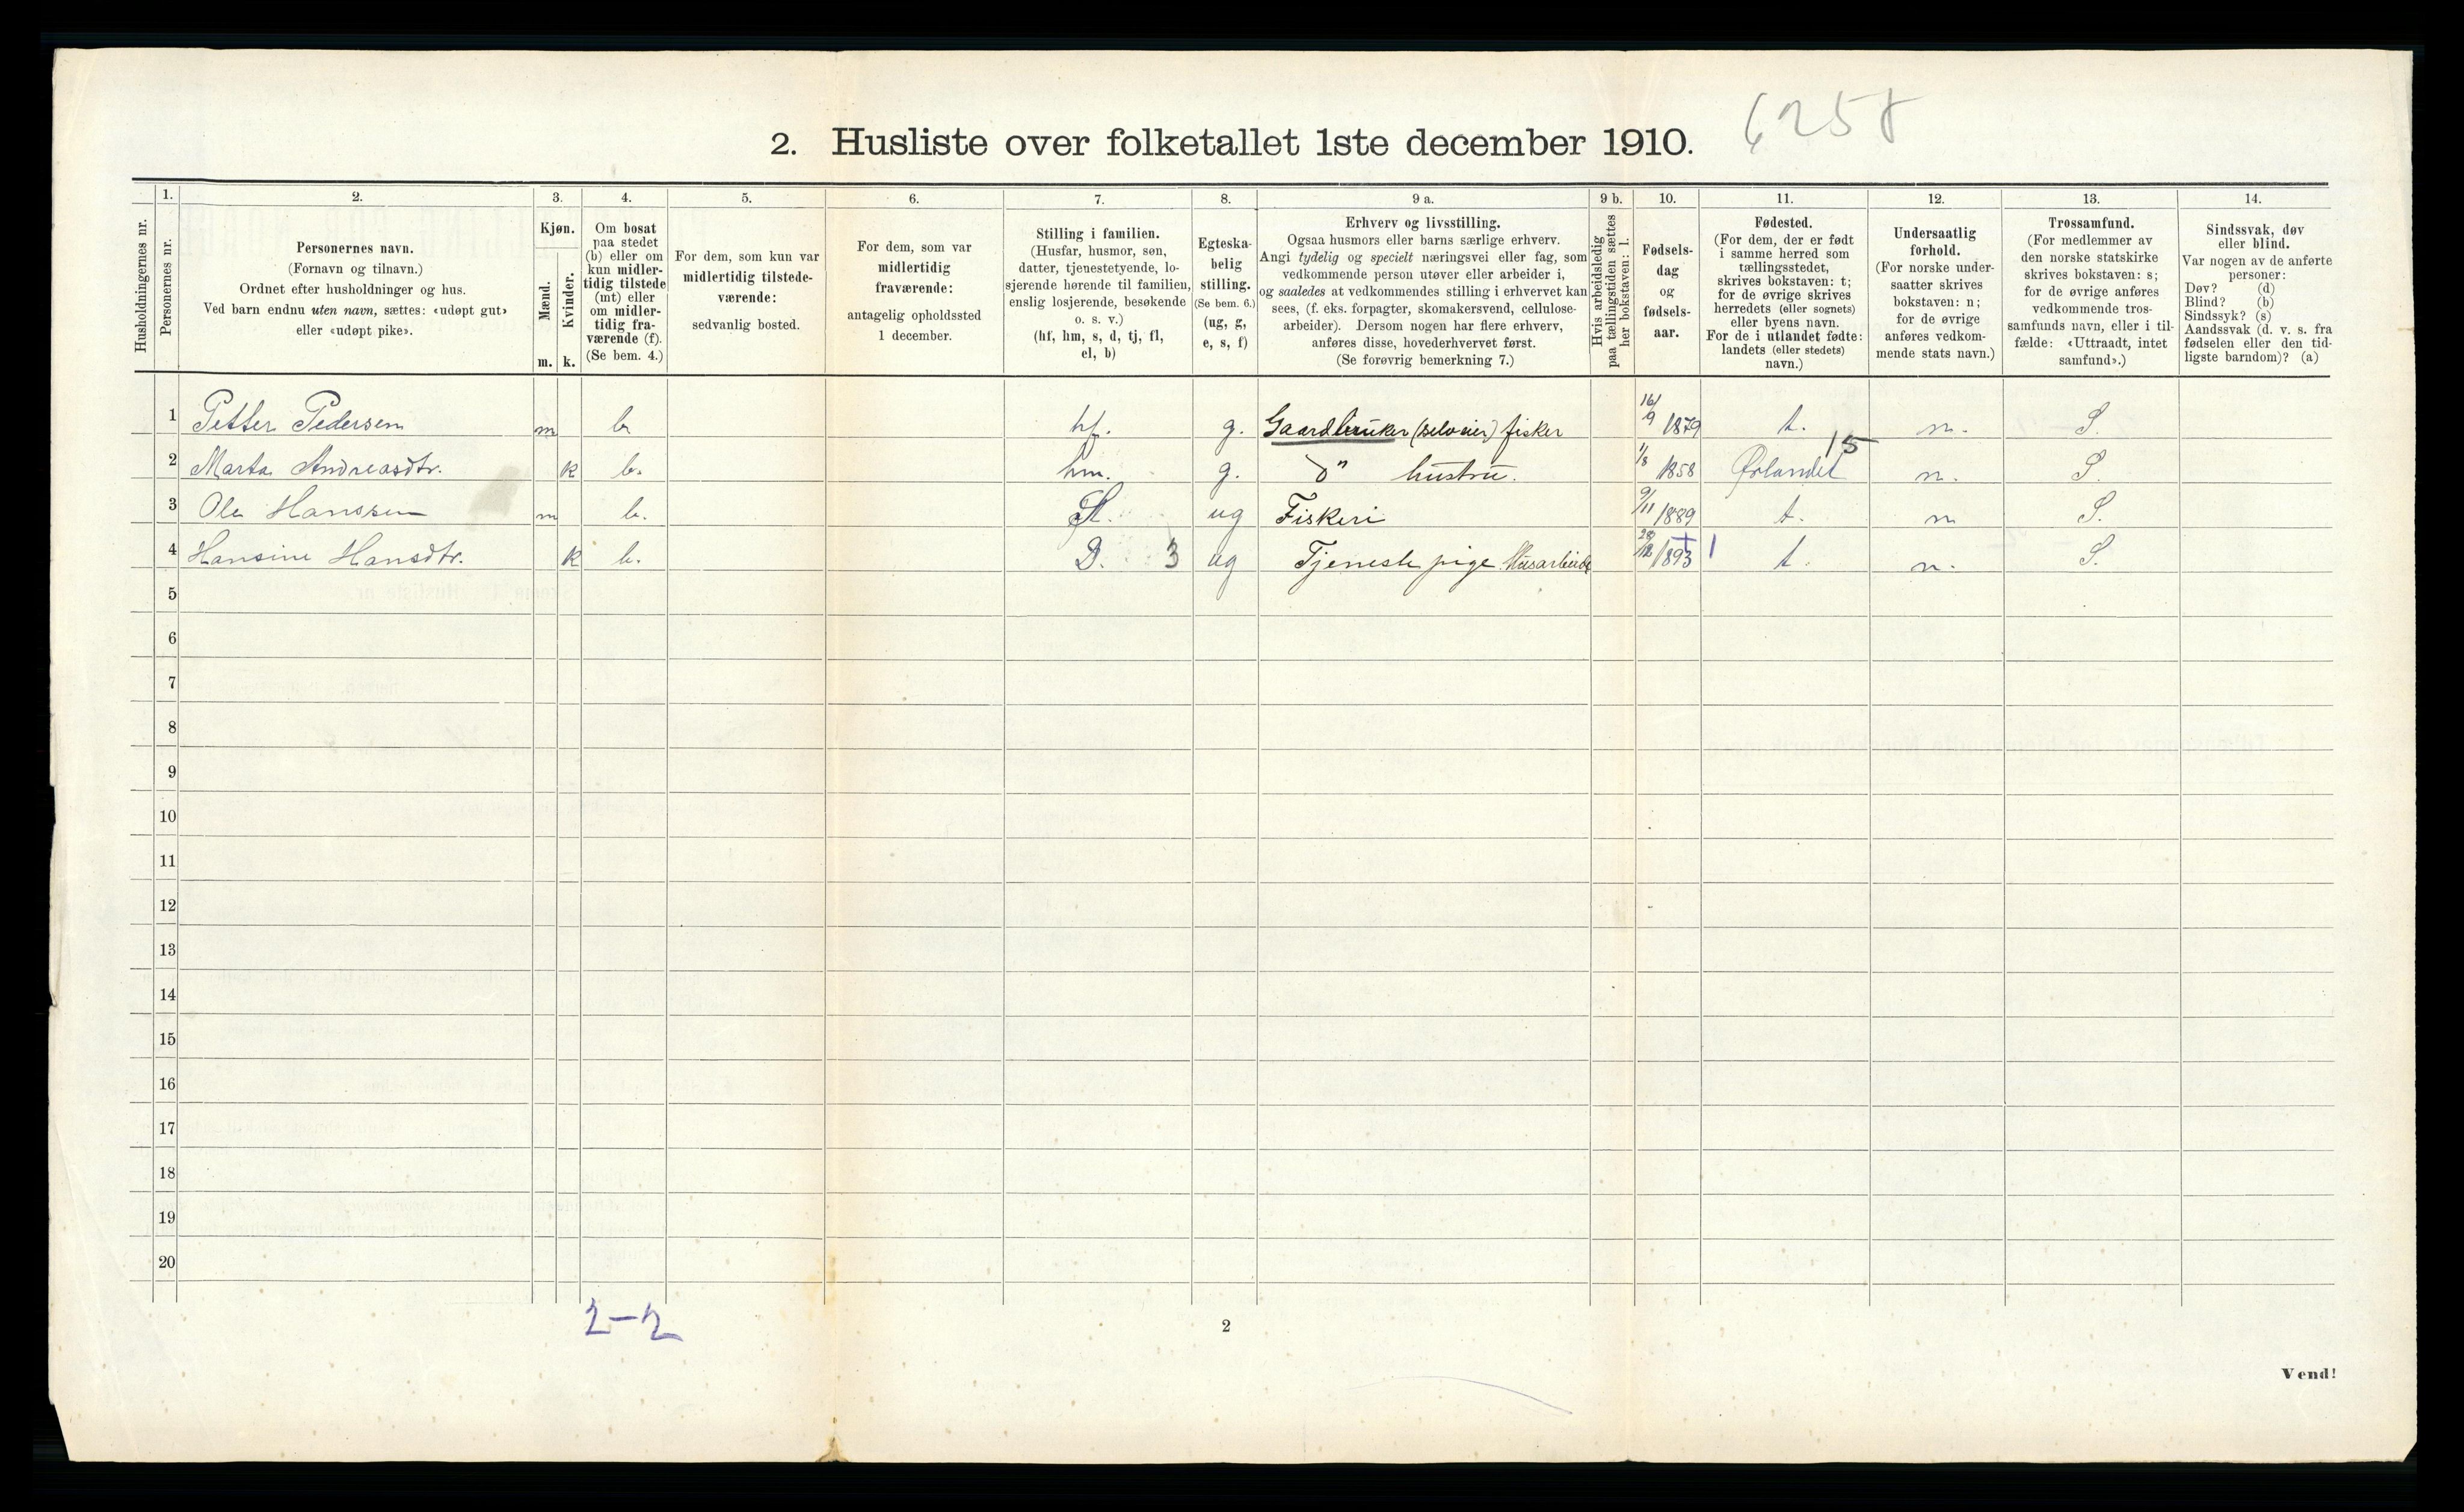 2. Husliste over folketallet 1ste december 1910.
6258
Husholdningernes nr.
1.
Personernes nr.
2.
Personernes navn.
(Fornavn og tilnavn.)
Ordnet efter husholdninger og hus.
Ved barn endnu uten navn, sættes: «udøpt gut»
eller «udøpt pike».
3.
Kjøn.
Mænd.
Kvinder.
m. k.
4.
Om bosat
paa stedet
(b) eller om
kun midler-
tidig tilstede
(mt) eller
om midler-
tidig fra-
værende (f).
(Se bem. 4.)
5.
For dem, som kun var
midlertidig tilstede-
værende:
sedvanlig bosted.
6.
For dem, som var
midlertidig
fraværende:
antagelig opholdssted
1 december.
7.
Stilling i familien.
(Husfar, husmor, søn,
datter, tjenestetyende, lo-
sjerende hørende til familien,
enslig losjerende, besøkende
o. s. v.)
(hf, hm, s, d, tj, fl,
el, b)
8.
Egteska-
belig
stilling.
(Se bem. 6.)
(ug, g,
e, s, f)
9 a.
Erhverv og livsstilling.
Ogsaa husmors eller barns særlige erhverv.
Angi tydelig og specielt næringsvei eller fag, som
vedkommende person utøver eller arbeider i,
og saaledes at vedkommendes stilling i erhvervet kan
sees, (f. eks. forpagter, skomakersvend, cellulose-
arbeider). Dersom nogen har flere erhverv,
anføres disse, hovederhvervet først.
(Se forøvrig bemerkning 7.)
9 b.
Hvis arbeidsledig
paa tællingstiden sættes
her bokstaven: l.
10.
Fødsels-
dag
og
fødsels-
aar.
11.
Fødested.
(For dem, der er født
i samme herred som
tællingsstedet,
skrives bokstaven: t;
for de øvrige skrives
herredets (eller sognets)
eller byens navn.
For de i utlandet fødte:
landets (eller stedets)
navn.)
12.
Undersaatlig
forhold.
(For norske under-
saatter skrives
bokstaven: n;
for de øvrige
anføres vedkom-
mende stats navn.)
13.
Trossamfund.
(For medlemmer av
den norske statskirke
skrives bokstaven: s;
for de øvrige anføres
vedkommende tros-
samfunds navn, eller i til-
fælde: «Uttraadt, intet
samfund».)
14.
Sindssvak, døv
eller blind.
Var nogen av de anførte
personer:
Døv? (d)
Blind? (b)
Sindssyk? (s)
Aandssvak (d. v. s. fra
fødselen eller den tid-
ligste barndom)? (a)
1 Petter Pedersen m b hf. g. Gaardbruker (selveier) fisker 16/9 1879 t. n. S.
2 Marta Andreasdtr. k b. hm. g. Do hustru. 1/8 1858 Ørlandet 15 n. S.
3 Ole Hanssen m b. Sl. ug Fiskeri 9/11 1889 t. n S.
4 Hansine Hansdtr. k b. D. 3 ug Tjenestepige Husarbeide 28/12 1893 + 1 t. n. S.
5
6
7
8
9
10
11
12
13
14
15
16
17
18
19
20
2-2
2
Vend!